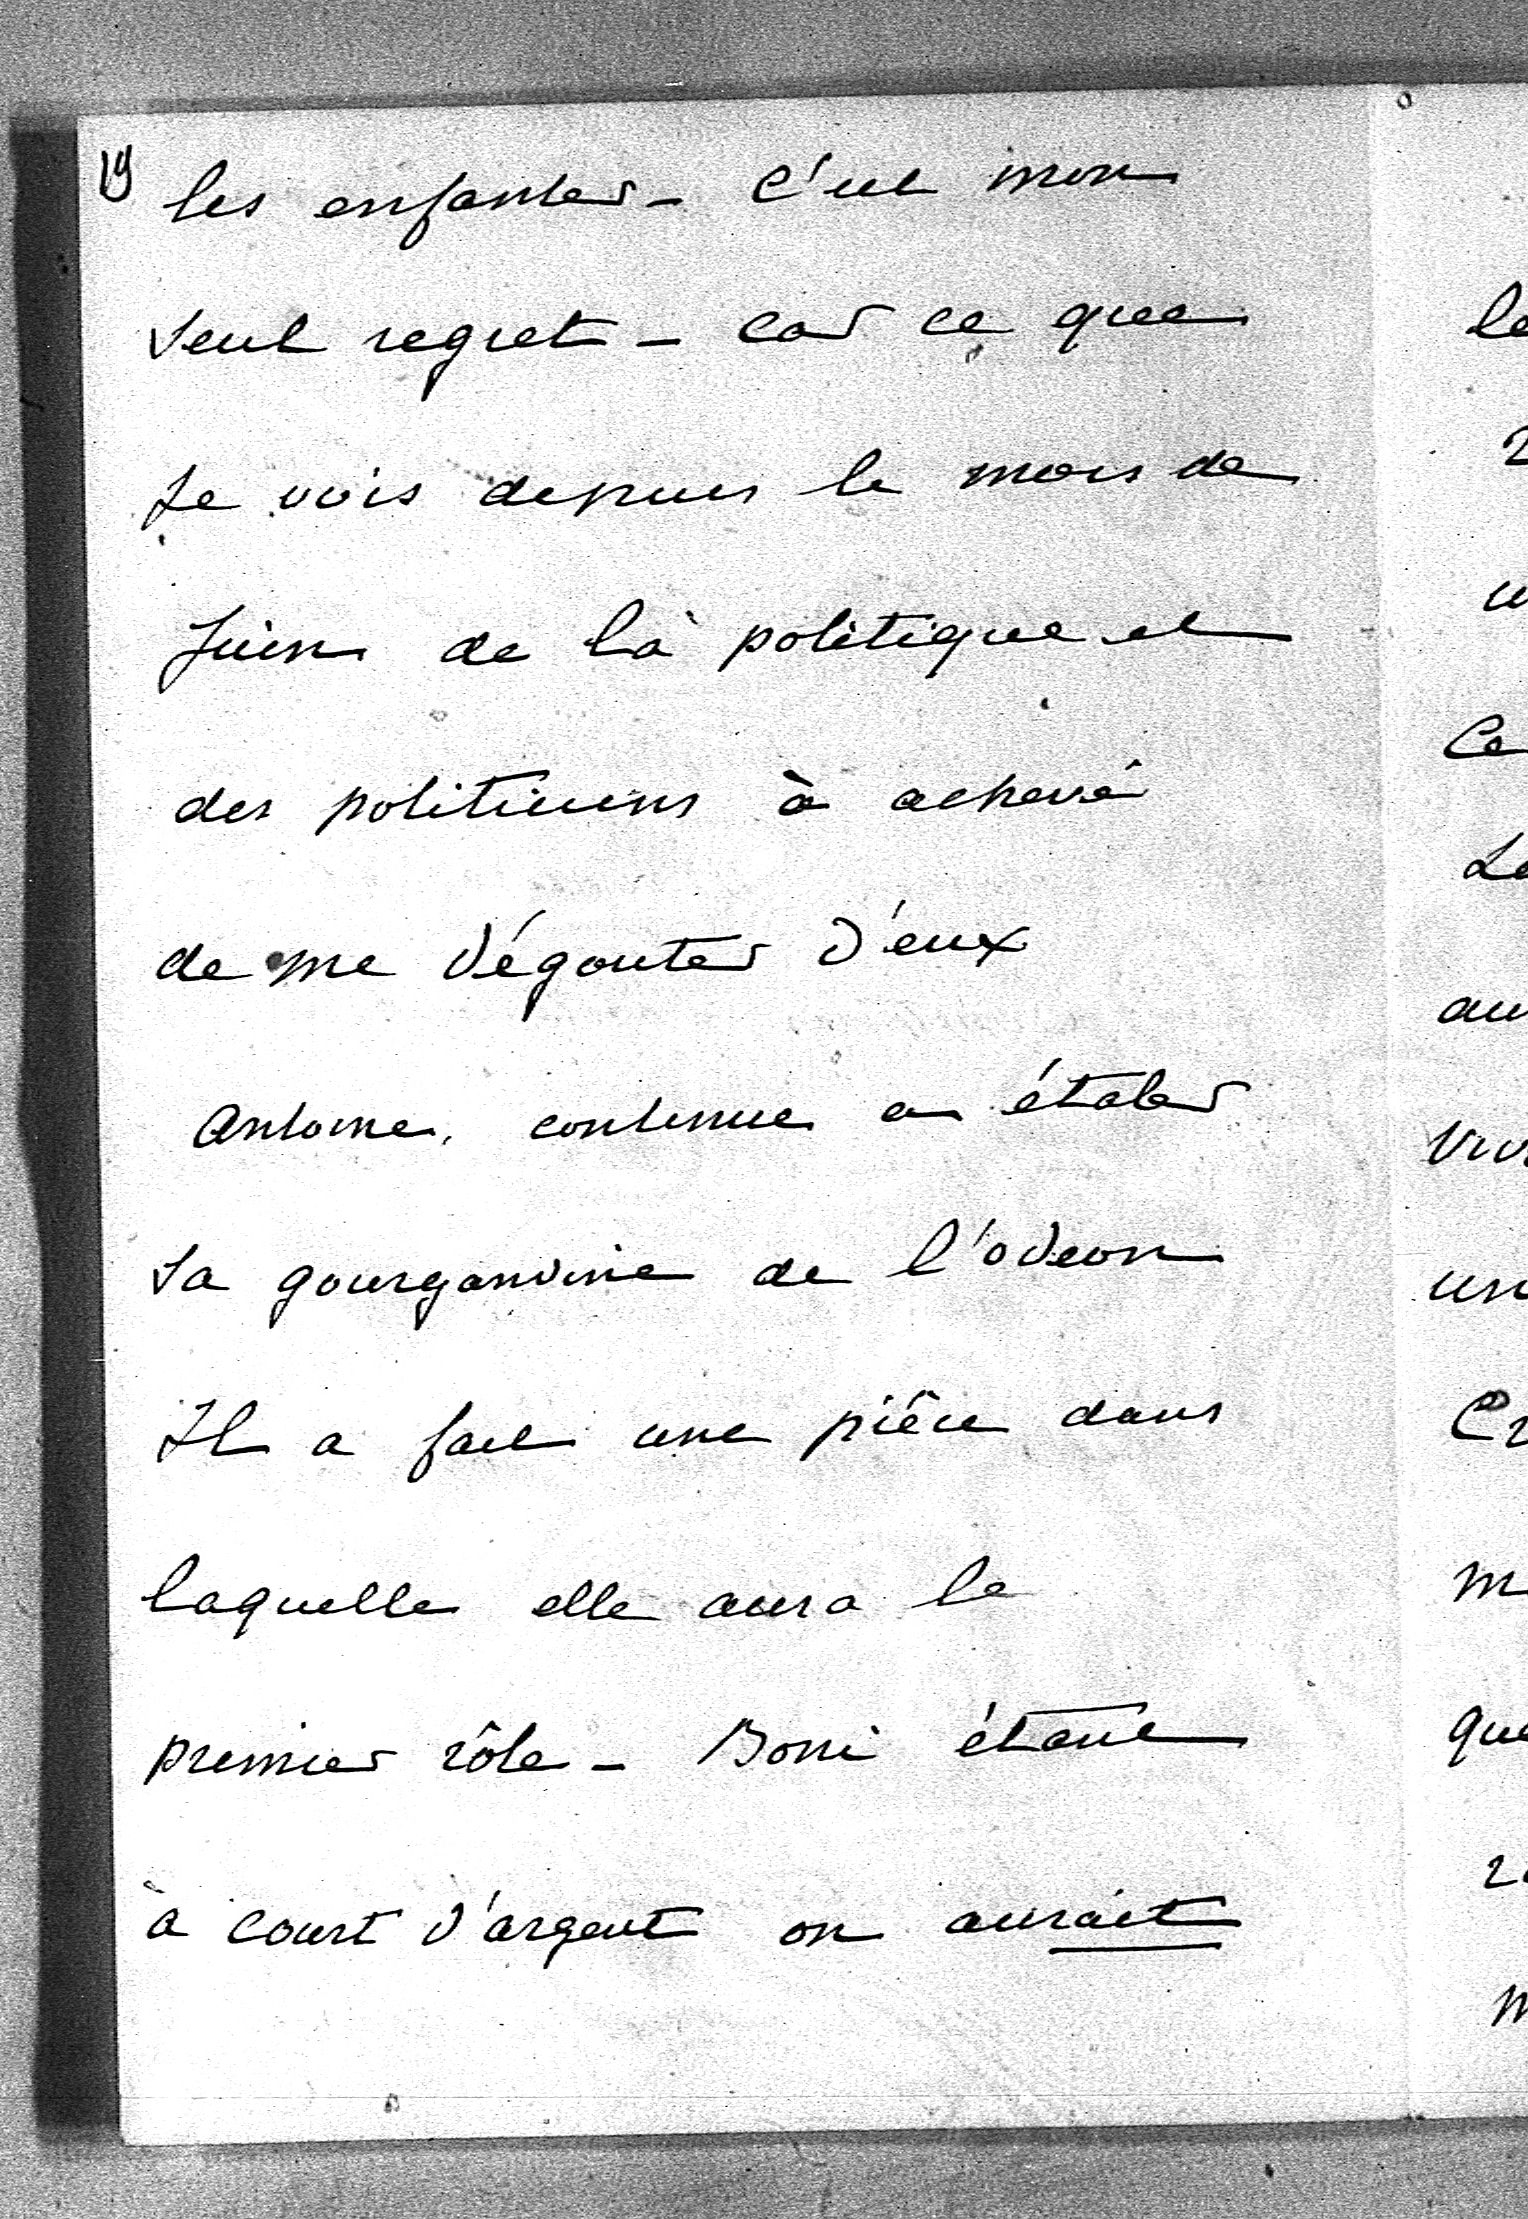 19
les enfanter - C'est mon
seul regret - car ce que
Je vois depuis le mois de
Juin de la politique et
des politiciens à achevé
de me dégouter d'eux
Antoine, continue a étaler
sa gourgandine de l'odeon
Il a fait une pièce dans
laquelle elle aura le
premier rôle - Boni étant
à court d'argent on aurait